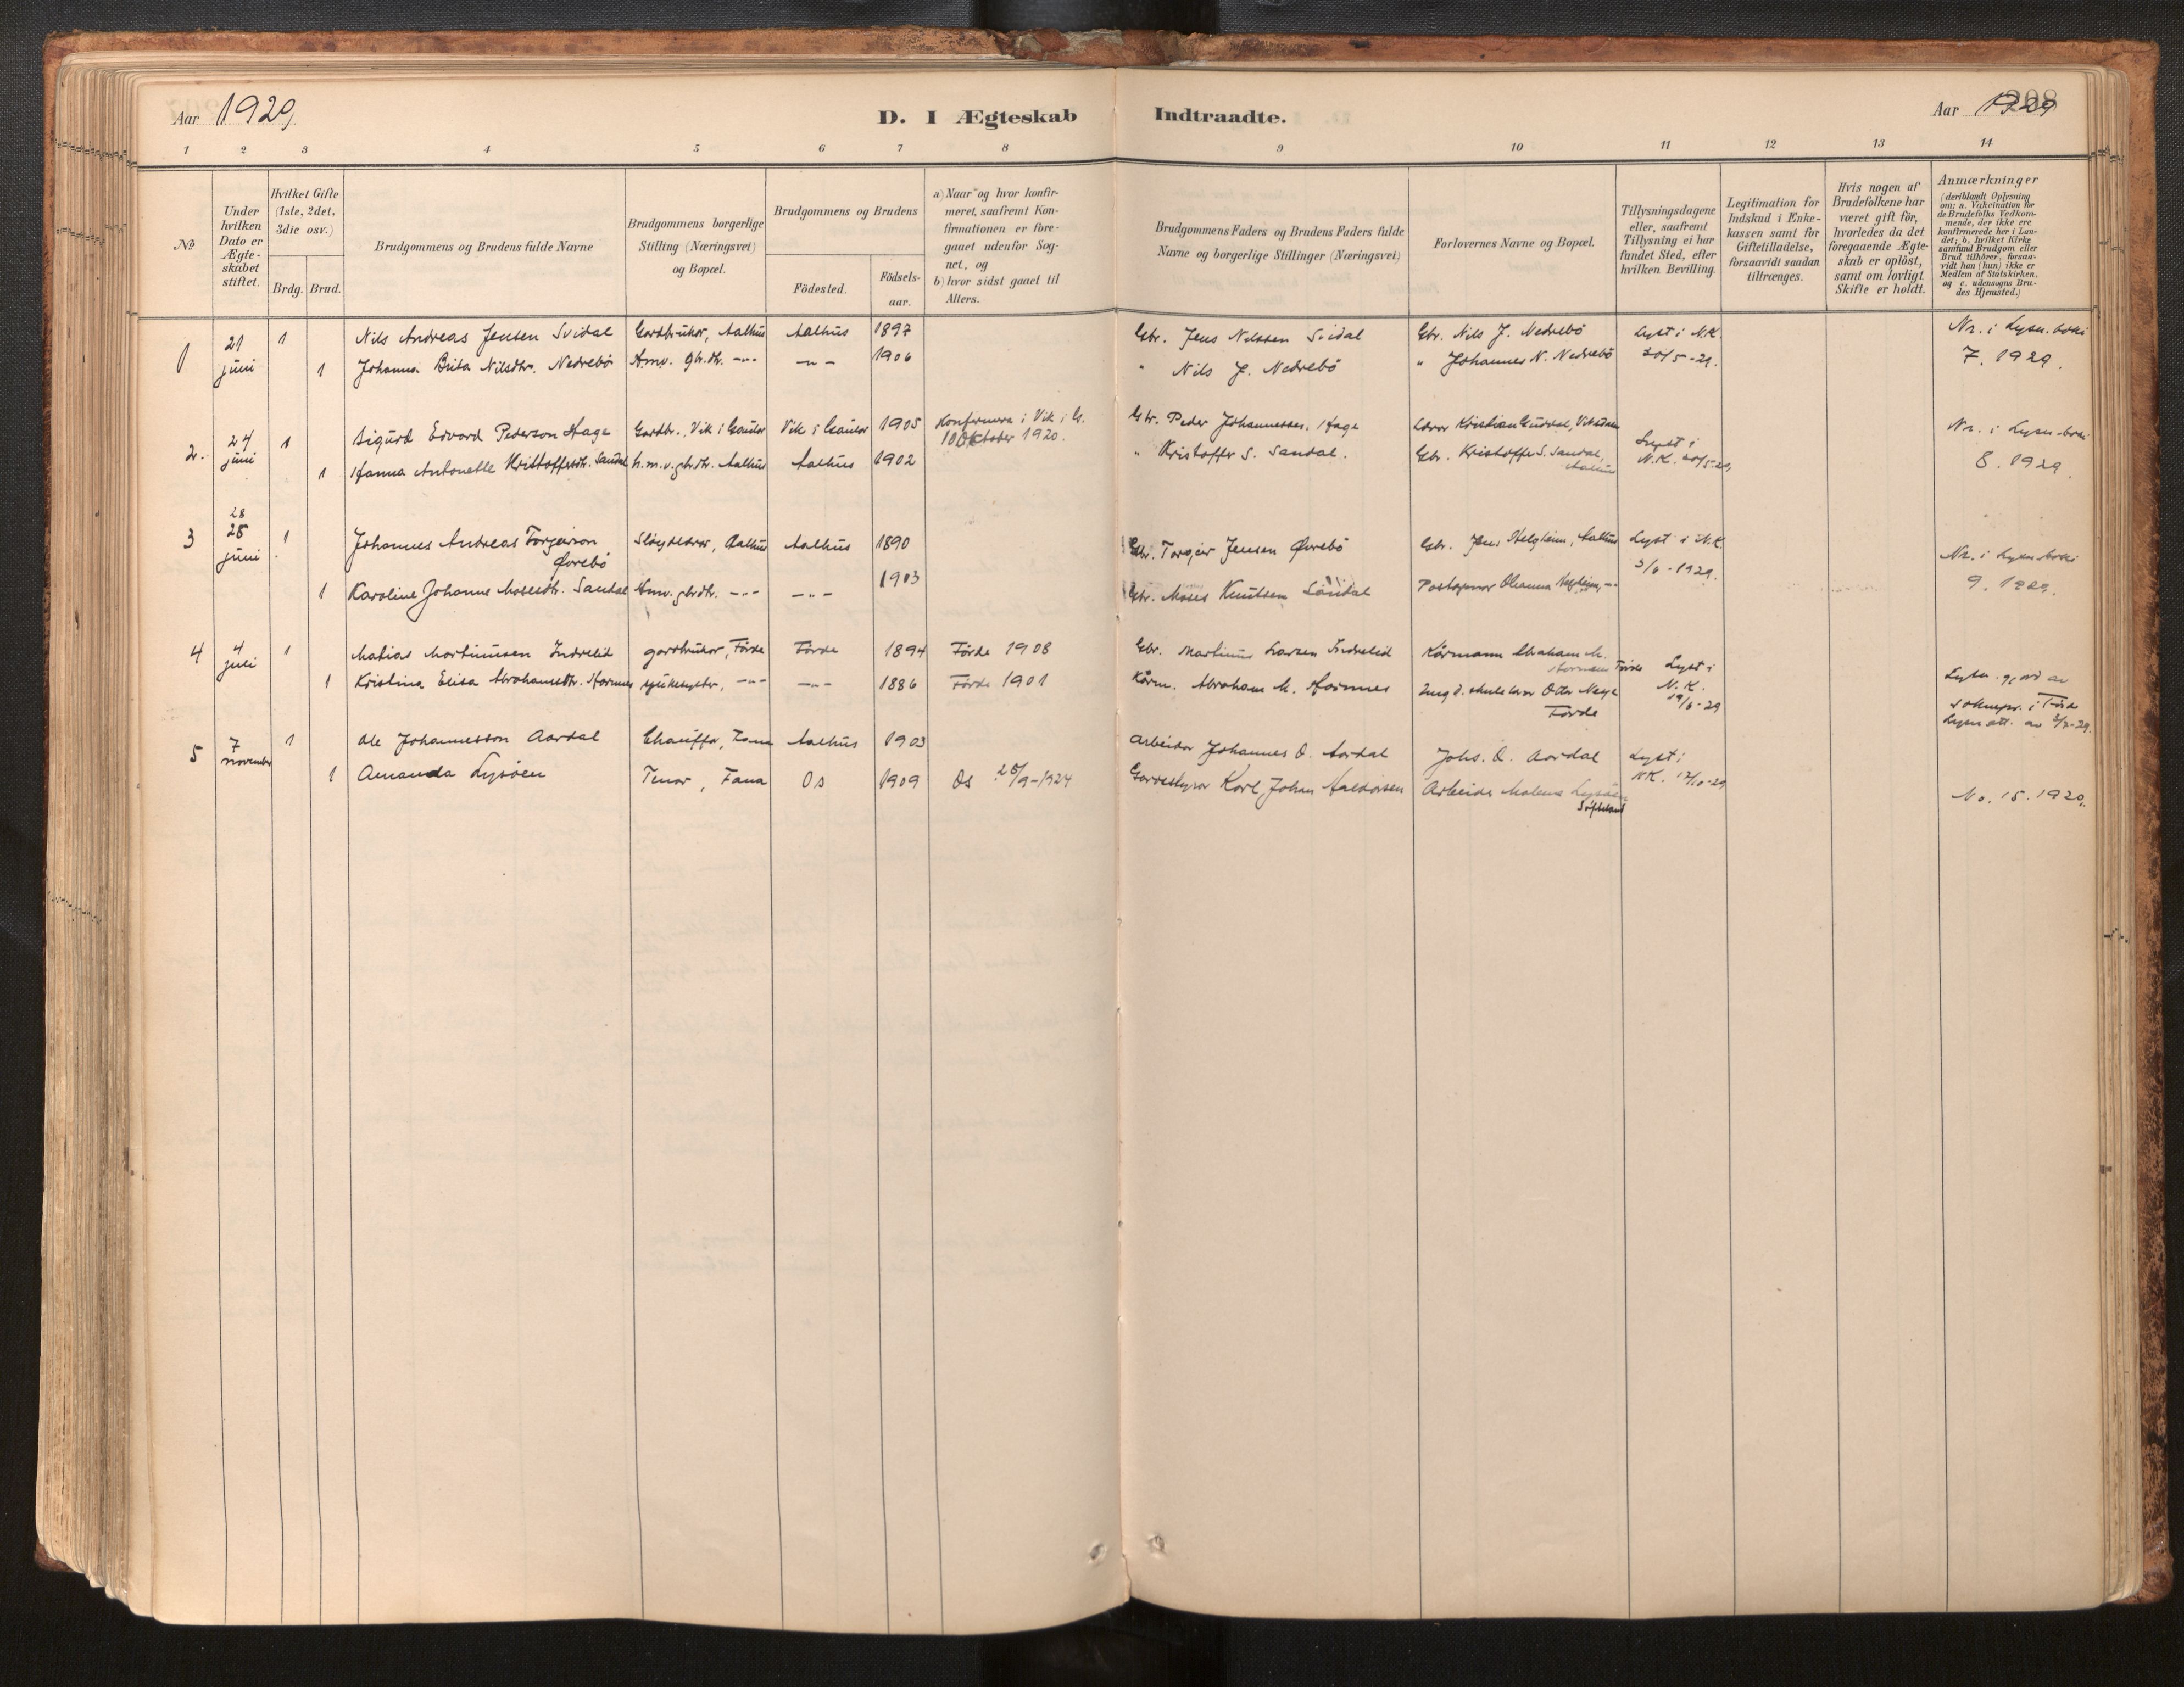 Aar 1929.
D. I Ægteskab Indtraadte.
Aar 1929
208
1 2 3 4 5 6 7 8 9 10 11 12 13 14
No
Under hvilken Dato er Ægte-skabet stiftet.
Hvilket Gifte (1ste, 2det, 3die osv.)
Brdg. Brud.
Brudgommens og Brudens fulde Navne
Brudgommens borgerlige Stilling (Næringsvei) og Bopæl.
Brudgommens og Brudens
Födested.
Födsels-aar.
a) Naar og hvor konfir-meret, saafremt Kon-firmationen er fore-gaaet udenfor Sog-net, og
b) hvor sidst gaaet til Alters.
Brudgommens Faders og Brudens Faders fulde Navne og borgerlige Stillinger (Næringsvei)
Forlovernes Navne og Bopæl.
Tillysningsdagene eller, saafremt Tillysning ei har fundet Sted, efter hvilken Bevilling.
Legitimation for Indskud i Enke-kassen samt for Giftetilladelse, forsaavidt saadan tiltrænges.
Hvis nogen af Brudefolkene har været gift för, hvorledes da det foregaaende Ægte-skab er oplöst, samt om lovligt Skifte er holdt.
Anmærkninger
(deriblandt Oplysning om: a. Vakcination for de Brudefolks Vedkom-mende, der ikke ere konfirmerede her i Lan-det; b. hvilket Kirke-samfund Brudgom eller Brud tilhörer, forsaa-vidt han (hun) ikke er Medlem af Statskirken, og c. udensogns Bru-des Hjemsted.)
1 21 juni 1 Nils Andreas Jensen Svidal Gardbrukar, Aalhus Aalhus 1897 Gbr. Jens Nilssen Svidal Gbr. Nils J. Nedrebö Lyst i N.K. 20/5-29. Nr. i Lysn.boki 7. 1929.
1 Johanna Brita Nilsdtr. Nedrebö Hmv. gbr.dtr. -"- -"- 1906 " Nils J. Nedrebö " Johannes N. Nedrebö
2. 24 juni 1 Sigurd Edvard Pederson Hage Gardbr., Vik i Gaular Vik i Gaular 1905 Konfirmera i Vik i G. Oktober 1920. Gbr. Peder Johannessen Hage Lærar Kristian Lyst i N.K. 20/5-29, Nr. i Lysn-boki 8. 1929.
1 Hanna Antonette Kristoffersdtr. Sandal h.m.v. gbrdtr. Aalhus Aalhus 1902 " Kristoffer S. Sandal. Gbr. Kristoffer S. Sandal, Aalhus
3 28 28 juni 1 Johannes Andreas Torgeirson Övrebö Slöydlærar, Aalhus Aalhus 1890 Gbr. Torgeir Jensen Övrebö Gbr. Jens Helgheim, Aalhus Lyst i N.K. 3/6-1929. Nr. i Lysn.boki 9. 1929.
1 Karoline Johanne Mosesdtr. Sandal Hmv. gbrdtr. -"- -"- 1903 Gbr. Moses Knutsen Sandal Postopnar Oleanna Helgheim, -"-
4 4 juli 1 Matias Martinusen Indrelid gardbrukar, Förde Förde 1894 Förde 1908 Gbr. Martinus Larsen Indrelid Kårmann Abraham M. Hornnes Förde Lyst i N.K. 19/6-29 Lysn. gjord av soknepr. i Förde
1 Kristina Elisa Abrahamsdtr. Hornnes sjukesyster, -"- -"- 1886 Förde 1901 Kårm. Abraham M. Hornnes Förde Lysn.att. av
5 7 november 1 Ole Johannesson Aardal Chauffør, Fana Aalhus 1903 Arbeidar Johannes O. Aardal Johs. O. Aardal Lyst i N.K. 17/10-29
1 Amanda Lysöen Tenar, Fana Os 1909 Os 28/9-1924 Gardstyrar Karl Johan Haldorsen Arbeider Lysöen Söfteland No. 15. 1929.